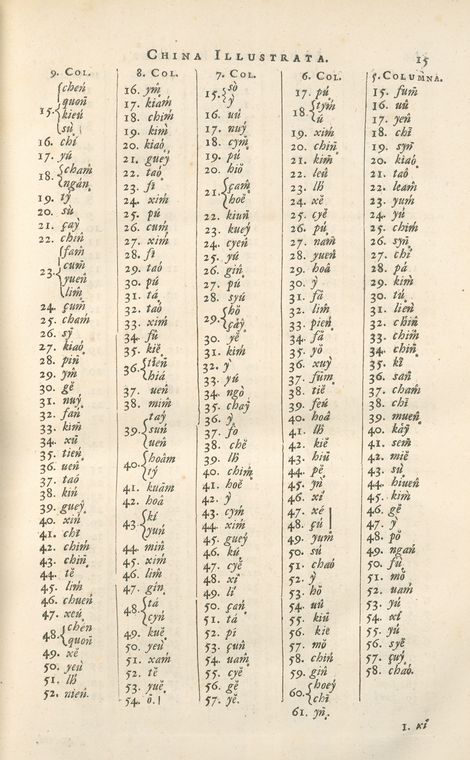 CHINA ILLUSTRATA.
15
9. COL.
15. {cheń
quoń
kieú
sú
16. chí
17. yú
18. {cham̀
ngán
19. tý
20. sù
21. çaý
22. chiń
23. {fam̀
cum̀
yueń
lim̀
24. çum̀
25. cham̀
26. sý
27. kiaò
28. piń
29. ym̀
30. gě
31. nuý
32. fań
33. kim̀
34. xū
35. tień
36. ueń
37. taò
38. kiń
39. gueý
40. xiń
41. chī
42. chim̀
43. chiñ
44. tě
45. lim̀
46. chueń
47. xeú
48. {chén
quoñ
49. xě
50. yeú
51. lh̃
52. nień.
8. COL.
16. ym̀
17. kiam̀
18. chim̀
19. kim̀
20. kiaó
21. gueý
22. taò
23. fi
24. xim̀
25. pú
26. cum̀
27. xim̀
28. fi
29. taó
30. pú
31. tá
32. taò
33. xim̀
34. fū
35. kiě
36. {tień
hiá
37. ueń
38. mim̀
39. {taý
suń
ueń
40. {hoâm
tý
41. kuàm
42. hoâ
43. {kí
yuń
44. miń
45. xim̀
46. lim̀
47. gin
48. {tá
cyń
49. kuě
50. yeú
51. xam̀
52. tě
53. yuě
54. ō.
7. COL.
15. {sò
ý
16. uú
17. nuý
18. cym̀
19. pú
20. hiō
21. {çam̀
hoě
22. kiuń
23. kueý
24. cyeń
25. yú
26. giń
27. pú
28. syú
29. {hō
çáy
30. yě
31. kim̀
32. ý
33. yú
34. ngò
35. chaý
36. ý
37. fō
38. chě
39. lh̃
40. chim̀
41. hoě
42. ý
43. cym̀
44. xim̀
45. gueý
46. kú
47. cyě
48. xí
49. lí
50. çań
51. tá
52. pi
53. çuñ
54. uam̀
55. cyě
56. gě
57. yě.
6. COL.
17. pú
18. {tym̀
ú
19. xim̀
20. chiñ
21. kim̀
22. leú
23. lh̃
24. xē
25. cyě
26. pú
27. nam̀
28. yueń
29. hoâ
30. ý
31. fā
32. lim̀
33. pień
34. fā
35. yō
36. xuý
37. fúm
38. tiě
39. feú
40. hoâ
41. lh̃
42. kiě
43. hiú
44. pě
45. yń
46. xí
47. xé
48. çú
49. yum̀
50. sú
51. chaó
52. ý
53. hō
54. uú
55. kiú
56. kie
57. mō
58. chiń
59. giń
60. {hoeý
chī
61. yñ.
5. COLUMNA.
15. fum̀
16. uú
17. yeń
18. chī
19. syñ
20. kiaò
21. taò
22. leam̀
23. yum̀
24. yú
25. chim̀
26. syñ
27. chí
28. pá
29. kim̀
30. tú
31. lień
32. chiñ
33. chim̀
34. chiñ
35. kī
36. sañ
37. cham̀
38. chī
39. mueñ
40. káy
41. sem̀
42. miě
43. sú
44. hiueń
45. kim̀
46. gě
47. ý
48. pō
49. ngań
50. fú
51. mō
52. uam̀
53. yú
54. xí
55. yú
56. syě
57. çuý
58. chaó.
1. xí